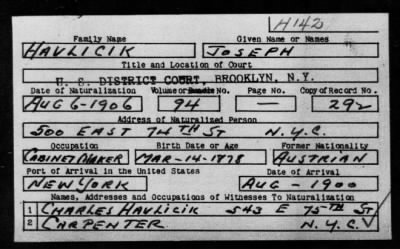 H142
Family Name Given Name or Names
HAVLICIK JOSEPH
Title and Location of Court
U. S. DISTRICT COURT, BROOKLYN, N.Y.
Date of Naturalization Volume or Bundle No. Page No. Copy of Record No.
AUG 6-1906 94 — 292
Address of Naturalized Person
500 EAST 74TH ST N.Y.C.
Occupation Birth Date or Age Former Nationality
CABINET MAKER MAR-14-1878 AUSTRIAN
Port of Arrival in the United States Date of Arrival
NEW YORK AUG-1900
Names, Addresses and Occupations of Witnesses To Naturalization
1 CHARLES HAVLICIK 543 E 75TH ST
2 CARPENTER N.Y.C.